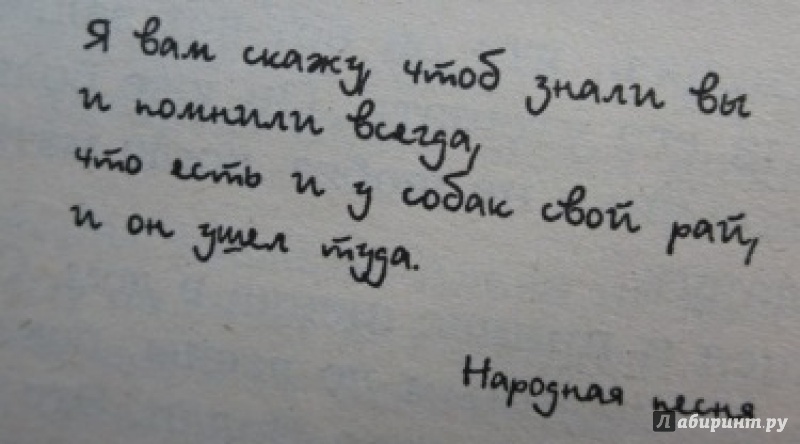 Я вам скажу, чтоб знали вы
и помнили всегда,
что есть и у собак свой рай,
и он ушел туда.
Народная песня
Лабиринт.ру